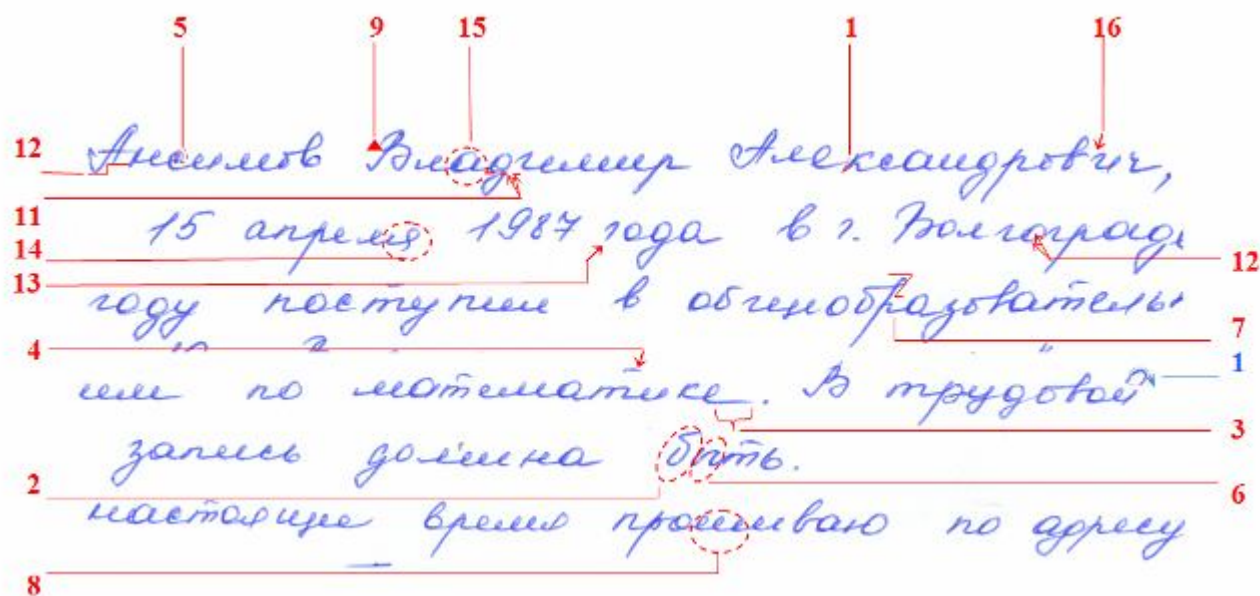 5 9 15 1 16
12
Ансимов Владимир Александрович,
11
15 апреля 1987 года в г. Волгограде
14 12
13
году поступил в общеобразовательн
7
4 1
по математике. В трудовой
3
запись должна быть.
2 6
настоящее время проживаю по адресу
8